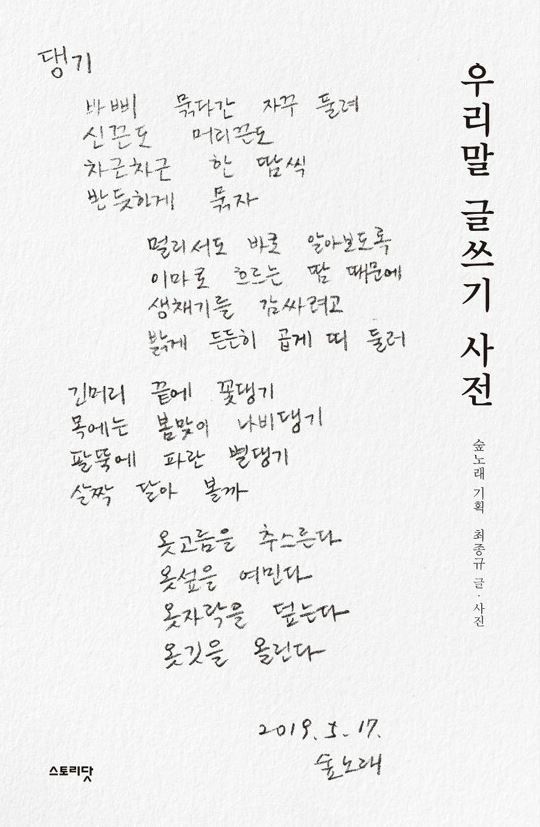 댕기
바삐 묶다간 자꾸 둘려
신끈도 머리끈도
차근차근 한 땀씩
반듯하게 묶자
멀리서도 바로 알아보도록
이마로 흐르는 땀 때문에
생채기를 감싸려고
붉게 든든히 곱게 띠 둘러
긴머리 끝에 꽃댕기
목에는 봄맞이 나비댕기
팔뚝에 파란 별댕기
살짝 달아 볼까
옷고름을 추스른다
옷섶을 여민다
옷자락을 덮는다
옷깃을 올린다
2019. 5. 17.
숲노래
우리말 글쓰기 사전
숲노래 기획 최종규 글·사진
스토리닷